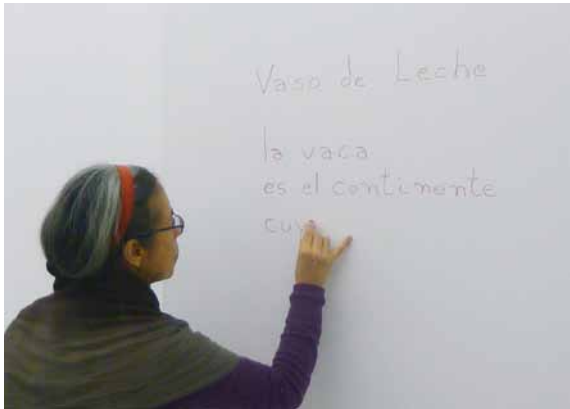 Vaso de Leche
la vaca
es el continente
cuy